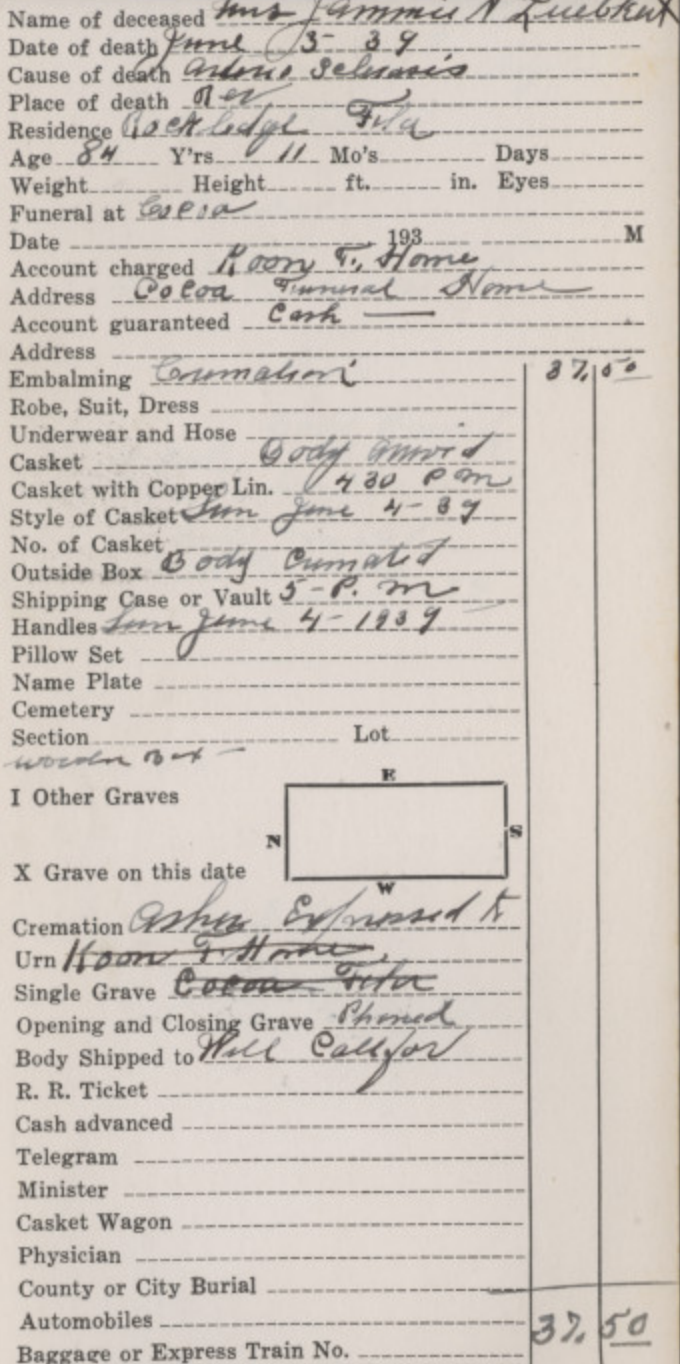 Name of deceased Mrs Jammie N Luebkert
Date of death June 3- 39
Cause of death
Place of death Res
Residence Rockledge Fla
Age 84 Y'rs 11 Mo's Days
Weight Height ft. in. Eyes
Funeral at Cocoa
Date 193 M
Account charged Koon F. Home
Address Cocoa Funeral Home
Account guaranteed Cash —
Address
Embalming Cremation 37.50
Robe, Suit, Dress
Underwear and Hose
Casket Body arrived
Casket with Copper Lin. 430 P m
Style of Casket Sun June 4-39
No. of Casket
Outside Box Body Cremated
Shipping Case or Vault 5- P. m
Handles Sun June 4- 1939
Pillow Set
Name Plate
Cemetery
Section Lot
wooden Box
E
I Other Graves
N S
X Grave on this date
W
Cremation Ashes Expressed to
Urn Koon F. Home
Single Grave Cocoa Fla
Opening and Closing Grave Phoned
Body Shipped to Will Call for
R. R. Ticket
Cash advanced
Telegram
Minister
Casket Wagon
Physician
County or City Burial
Automobiles 37.50
Baggage or Express Train No.